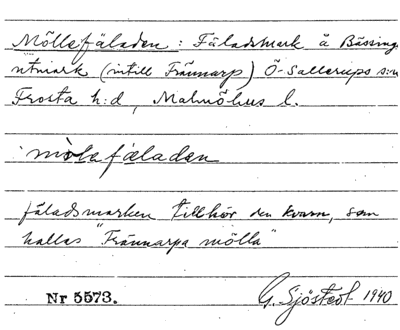 Möllefäladen : Fäladsmark å Bässing
utmark (intill Frännarp) Ö-Sallerups s:n
Frosta h:d, Malmöhus l.
mölefäladen
fäladsmarken tillhör den kvarn, som
kallas "Frännarpa mölla"
Nr 5573.
G. Sjöstedt 1940